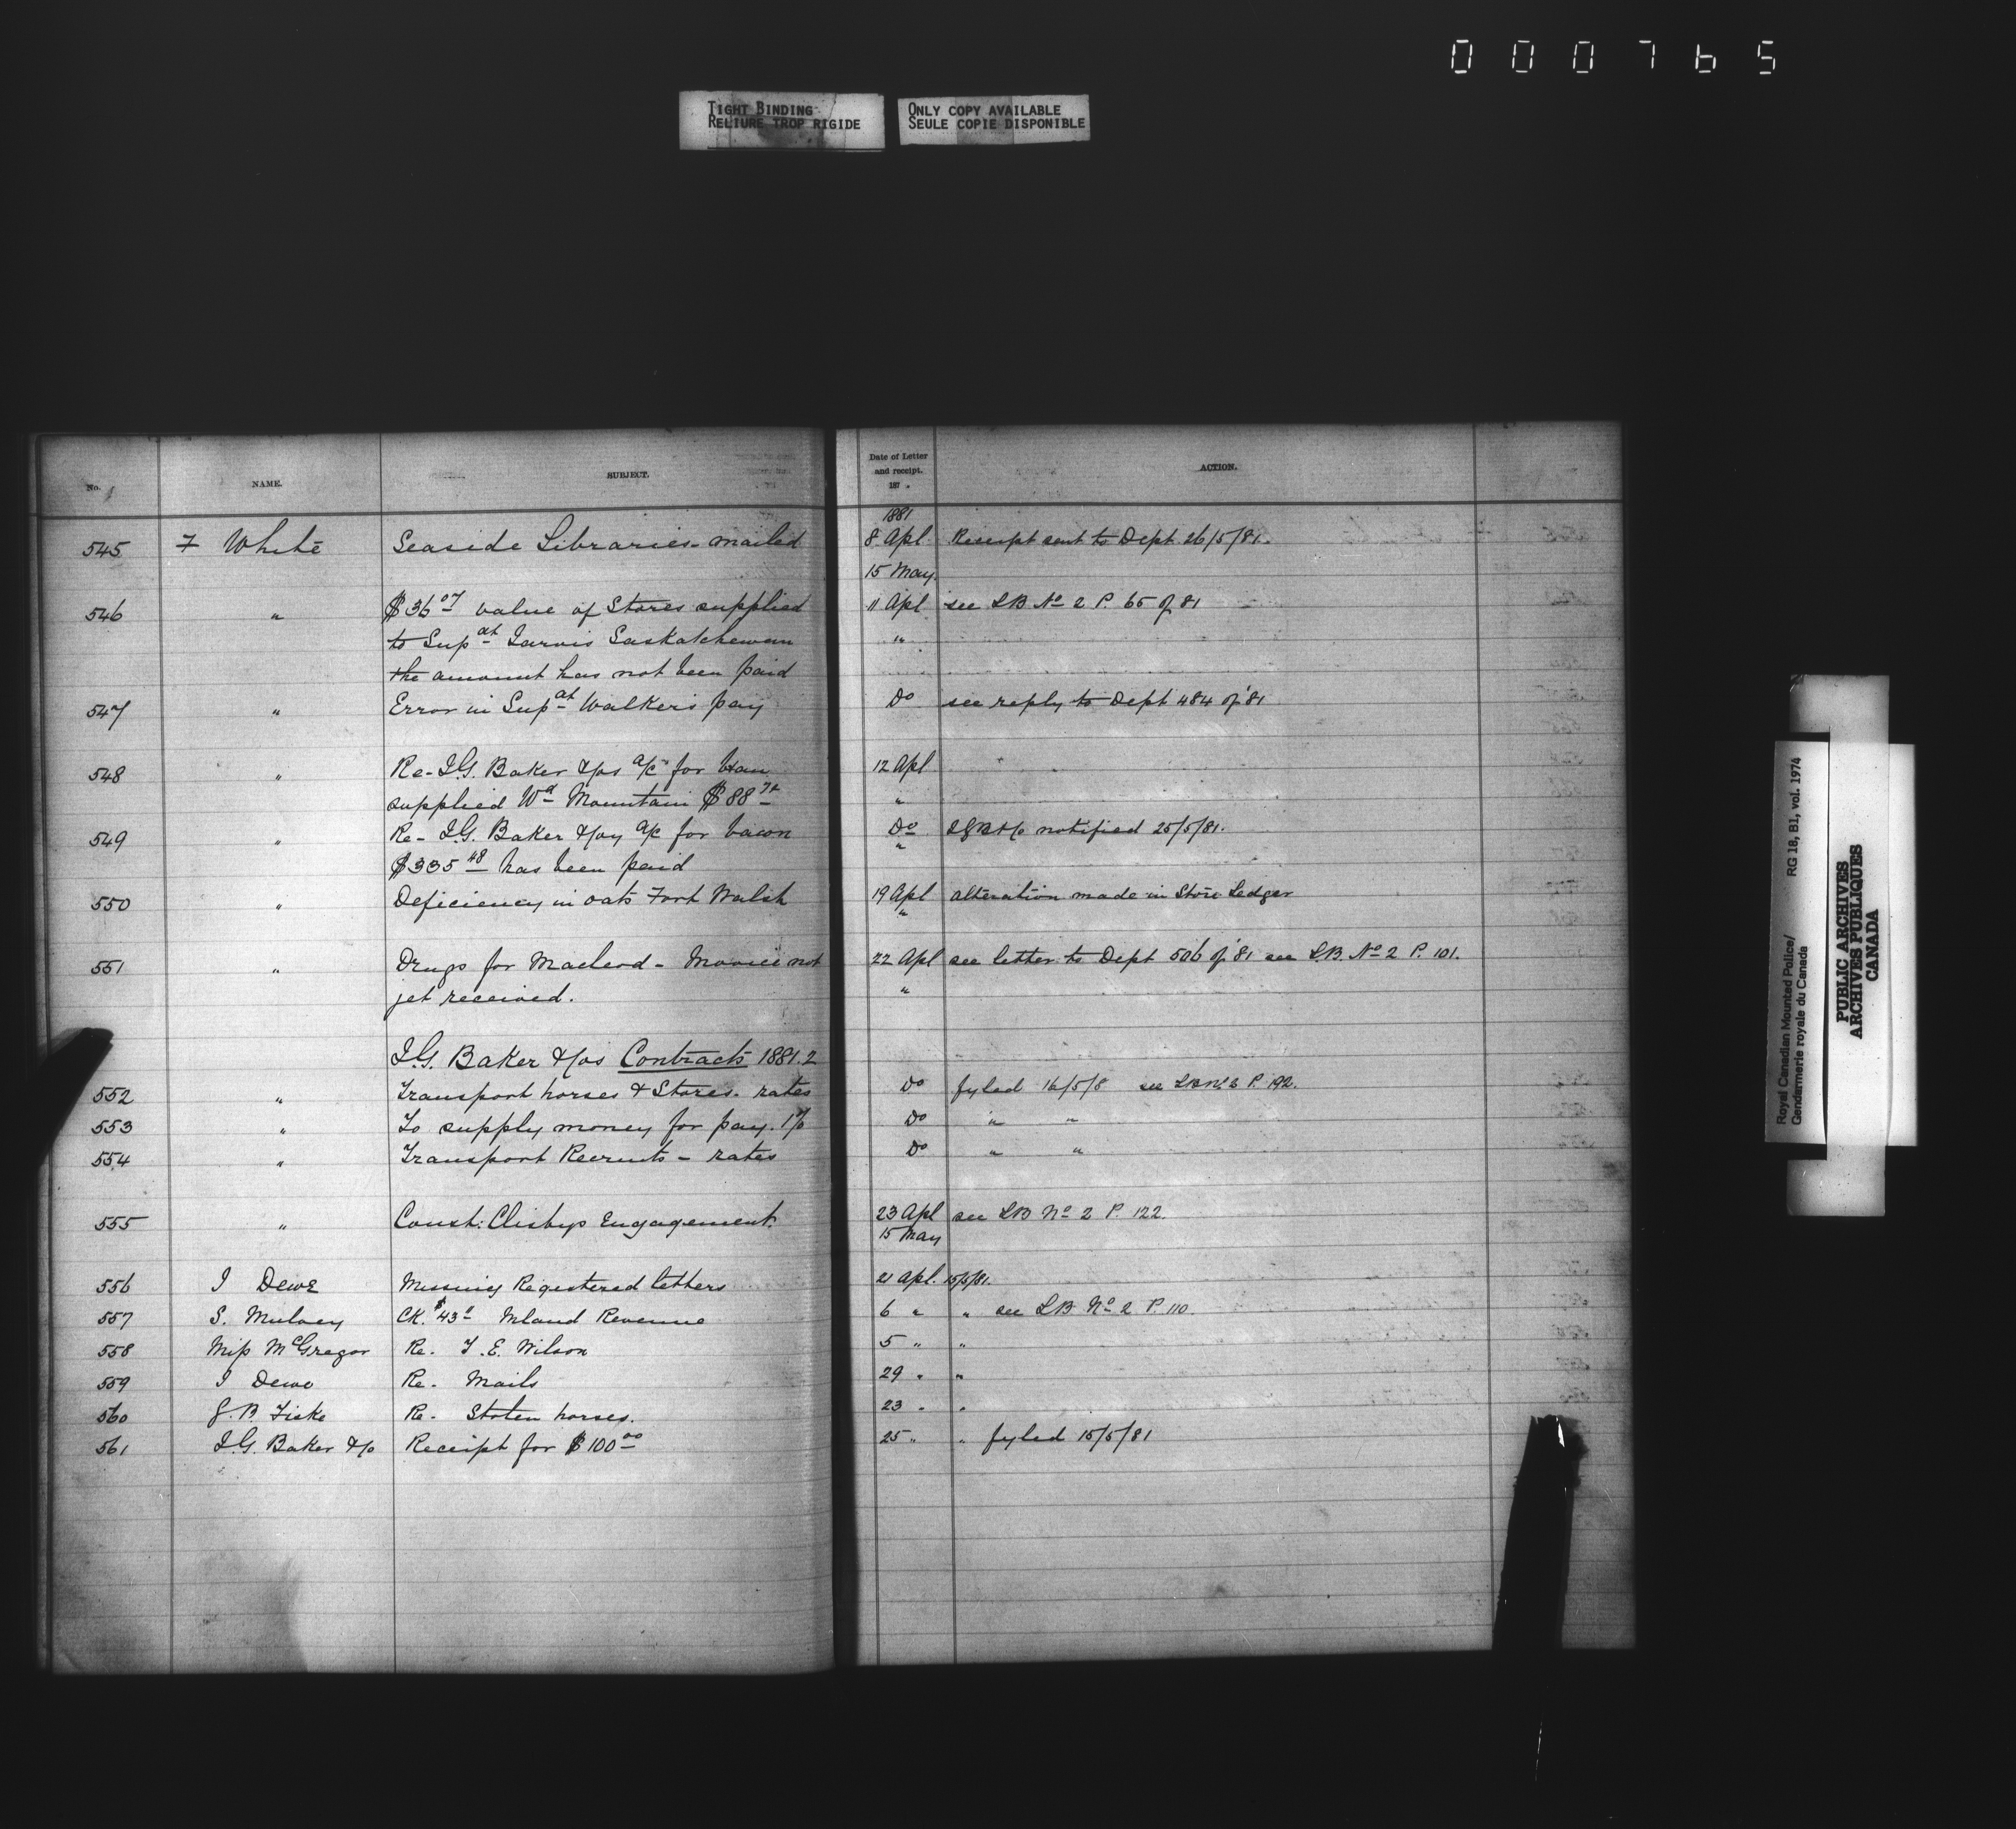 000765
TIGHT BINDING
RELIURE TROP RIGIDE
ONLY COPY AVAILABLE
SEULE COPIE DISPONIBLE
No. NAME. SUBJECT. Date of Letter and receipt. 187 . ACTION.
1881
545 F White Seaside Libraries - mailed 8 Apl Receipt sent to Dept 26/5/81.
15 May
546 " $36 07 value of Stores supplied 11 Apl see LB No 2 P. 65 of 81
to Supat Jarvis Saskatchewan "
the amount has not been paid
547 " Error in Supat Walkers pay Do see reply to Dept 484 of '81
548 " Re - I.G. Baker &Cos a/c for bran 12 Apl
supplied Wd Mountain $88 "
549 " Re - I.G. Baker &Coy a/c for bacon Do IGB&Co notified 25/5/81.
$335 48 has been paid "
550 " Deficiency in oats Fort Walsh 19 Apl alteration made in Store Ledger
"
551 " Drugs for Macleod - Invoice not 22 Apl see letter to Dept 506 of '81 see L.B. No 2 P. 101.
yet received. "
I.G. Baker &Cos Contracts 1881.2
552 " Transport horses & Stores - rates Do fyled 16/5/8 see LB No 2 P. 192.
553 " To supply money for pay. 1% Do " "
554 " Transport Recruits - rates Do " "
555 " Const: Clisbys Engagement. 23 Apl see LB No 2 P. 122.
15 May
556 J Dewe Missing Registered letters 21 Apl. 15/5/81.
557 S. Mulvey CK. $43 Inland Revenue 6 " " see LB No 2 P. 110.
558 Miss McGregor Re. T. E. Wilson 5 " "
559 J Dewe Re. Mails 29 " "
560 J. B Fiske Re. Stolen horses. 23 " "
561 I.G. Baker &Co Receipt for $100 00 25 " " fyled 15/5/81
Royal Canadian Mounted Police/
Gendarmerie royale du Canada
RG 18, B1, vol. 1974
PUBLIC ARCHIVES
ARCHIVES PUBLIQUES
CANADA